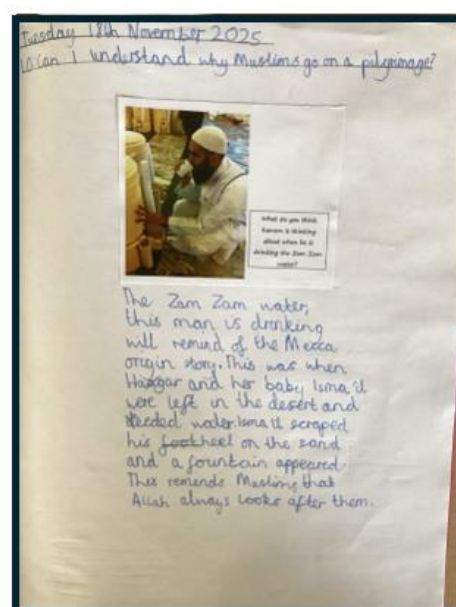 Tuesday 18th November 2025
LO: Can I understand why Muslims go on a pilgrimage?
What do you think
is thinking
about when he is
drinking the Zam Zam
water?
The Zam Zam water,
this man is drinking
will remind of the Mecca
origin story. This was when
Haggar and her baby Isma'il
were left in the desert and
needed water. Isma'il scraped
his foot heel on the sand
and a fountain appeared.
This reminds Muslims that
Allah always looks after them.